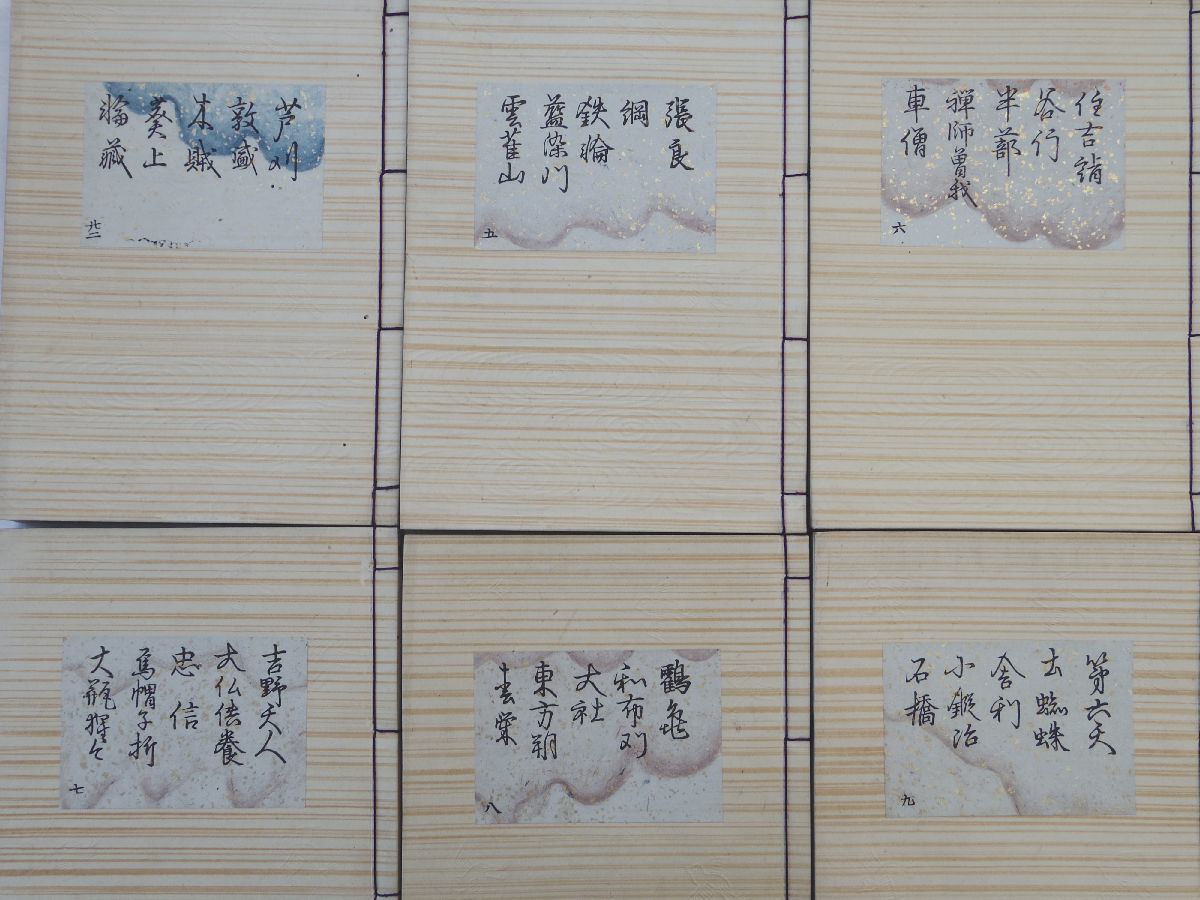 芦刈
敦盛
木賊
葵上
輪蔵
廿一
張良
綱
鉄輪
藍染川
雲雀山
五
住吉詣
谷行
半蔀
禅師曽我
車僧
六
吉野天人
大仏供養
忠信
烏帽子折
大瓶猩々
七
鶴亀
和布刈
大社
東方朔
八
第六天
土蜘蛛
舎利
小鍛冶
石橋
九